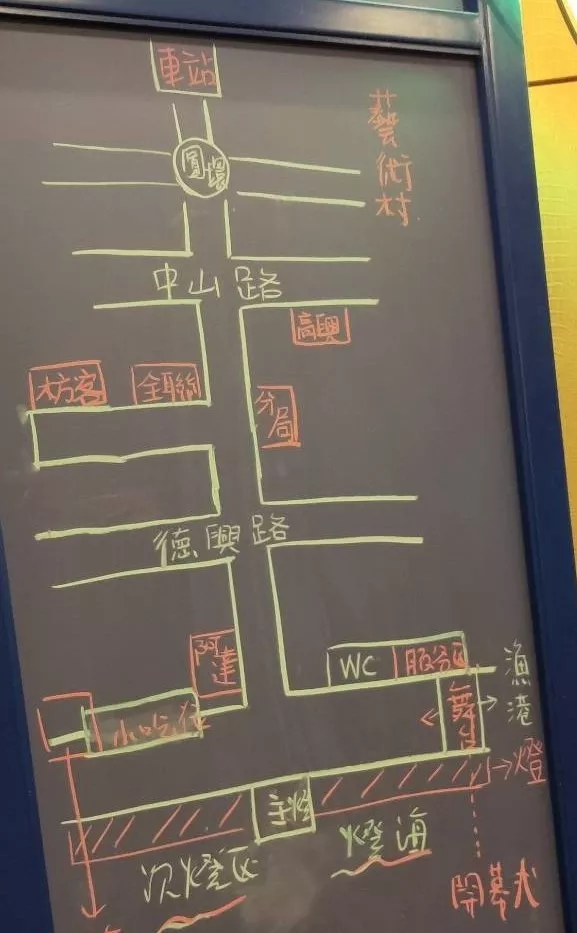 車站
藝術村
圓環
中山路
高興
枋客
全聯
分局
德興路
阿達
WC
服務區
漁港
小吃街
舞台
燈
主燈
燈海
次燈區
開幕式